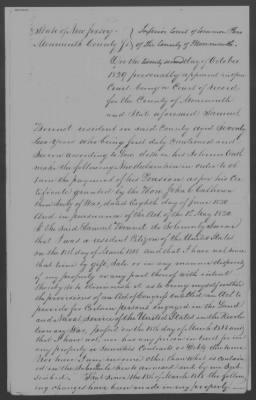 State of New Jersey Inferior Court of Common Pleas
Monmouth County of the County of Monmouth
On the day of October
1820 personally appeared in open
Court being a Court of Record
for the County of Monmouth
and State aforesaid Samuel
Bennet resident in said County aged Seventy
two Years who being first duly Sworn and
Sworn according to Law doth on his Solemn Oath
make the following declaration in order to ob
tain the payment of his Pension as per his Cer
tificate granted by the Hon. John C. Calhoun
Secretary of War, dated Eighth day of June 1820
And in pursuance of the Act of the 1st May 1820.
I the said Samuel Bennet do Solemnly Swear
that I was a resident Citizen of the United States
on the 18th day of March 1818 and that I have not since
that time by gift, sale or in any manner disposed
of my property or any part thereof with intent
thereby so to diminish it as to bring myself within
the provisions of an Act of Congress entitled an Act to
provide for Certain persons engaged in the Land
and Naval Service of the United States in the Revolu
tionary War, passed on the 18th day of March 1818 and
that I have not nor has any person in trust for me
any property or Securities Contracts or debts due to me
Nor have I any income other than what is contain
ed in the Schedule hereto annexed and by me Sub
scribed. That Since the 18th of March 1818 the follow
ing changes have been made in my property